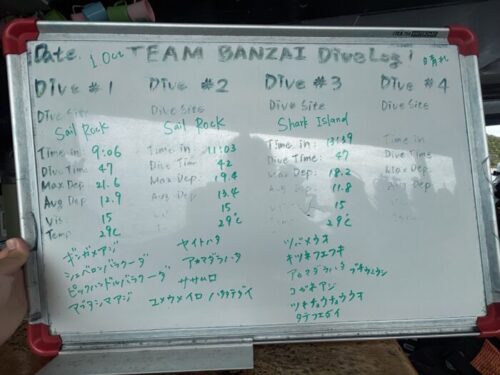 Date 1 Oct TEAM BANZAI Dive Log! 晴れ
Dive #1 Dive #2 Dive #3 Dive #4
Dive Site Dive Site Dive Site Dive Site
Sail Rock Sail Rock Shark Island
Time in: 9:06 Time in: 11:03 Time in: 13:39 Time in:
Dive Time: 47 Dive Time: 42 Dive Time: 47 Dive Time:
Max Dep: 21.6 Max Dep: 19.4 Max Dep: 18.2 Max Dep:
Avg Dep: 12.9 Avg Dep: 13.4 Avg Dep: 11.8 Avg Dep:
Vis: 15 15 15
Temp: 29℃ 29℃ 29℃
ギンガメアジ ヤイトハタ ツバメウオ
シェベロンバラクーダ アカマダラハタ キツネフエフキ
ピックハンドルバラクーダ ササムロ アカマダラハタ
マブタシマアジ ユメウメイロ コガネアジ
ツキチョウチョウウオ
タテフエダイ